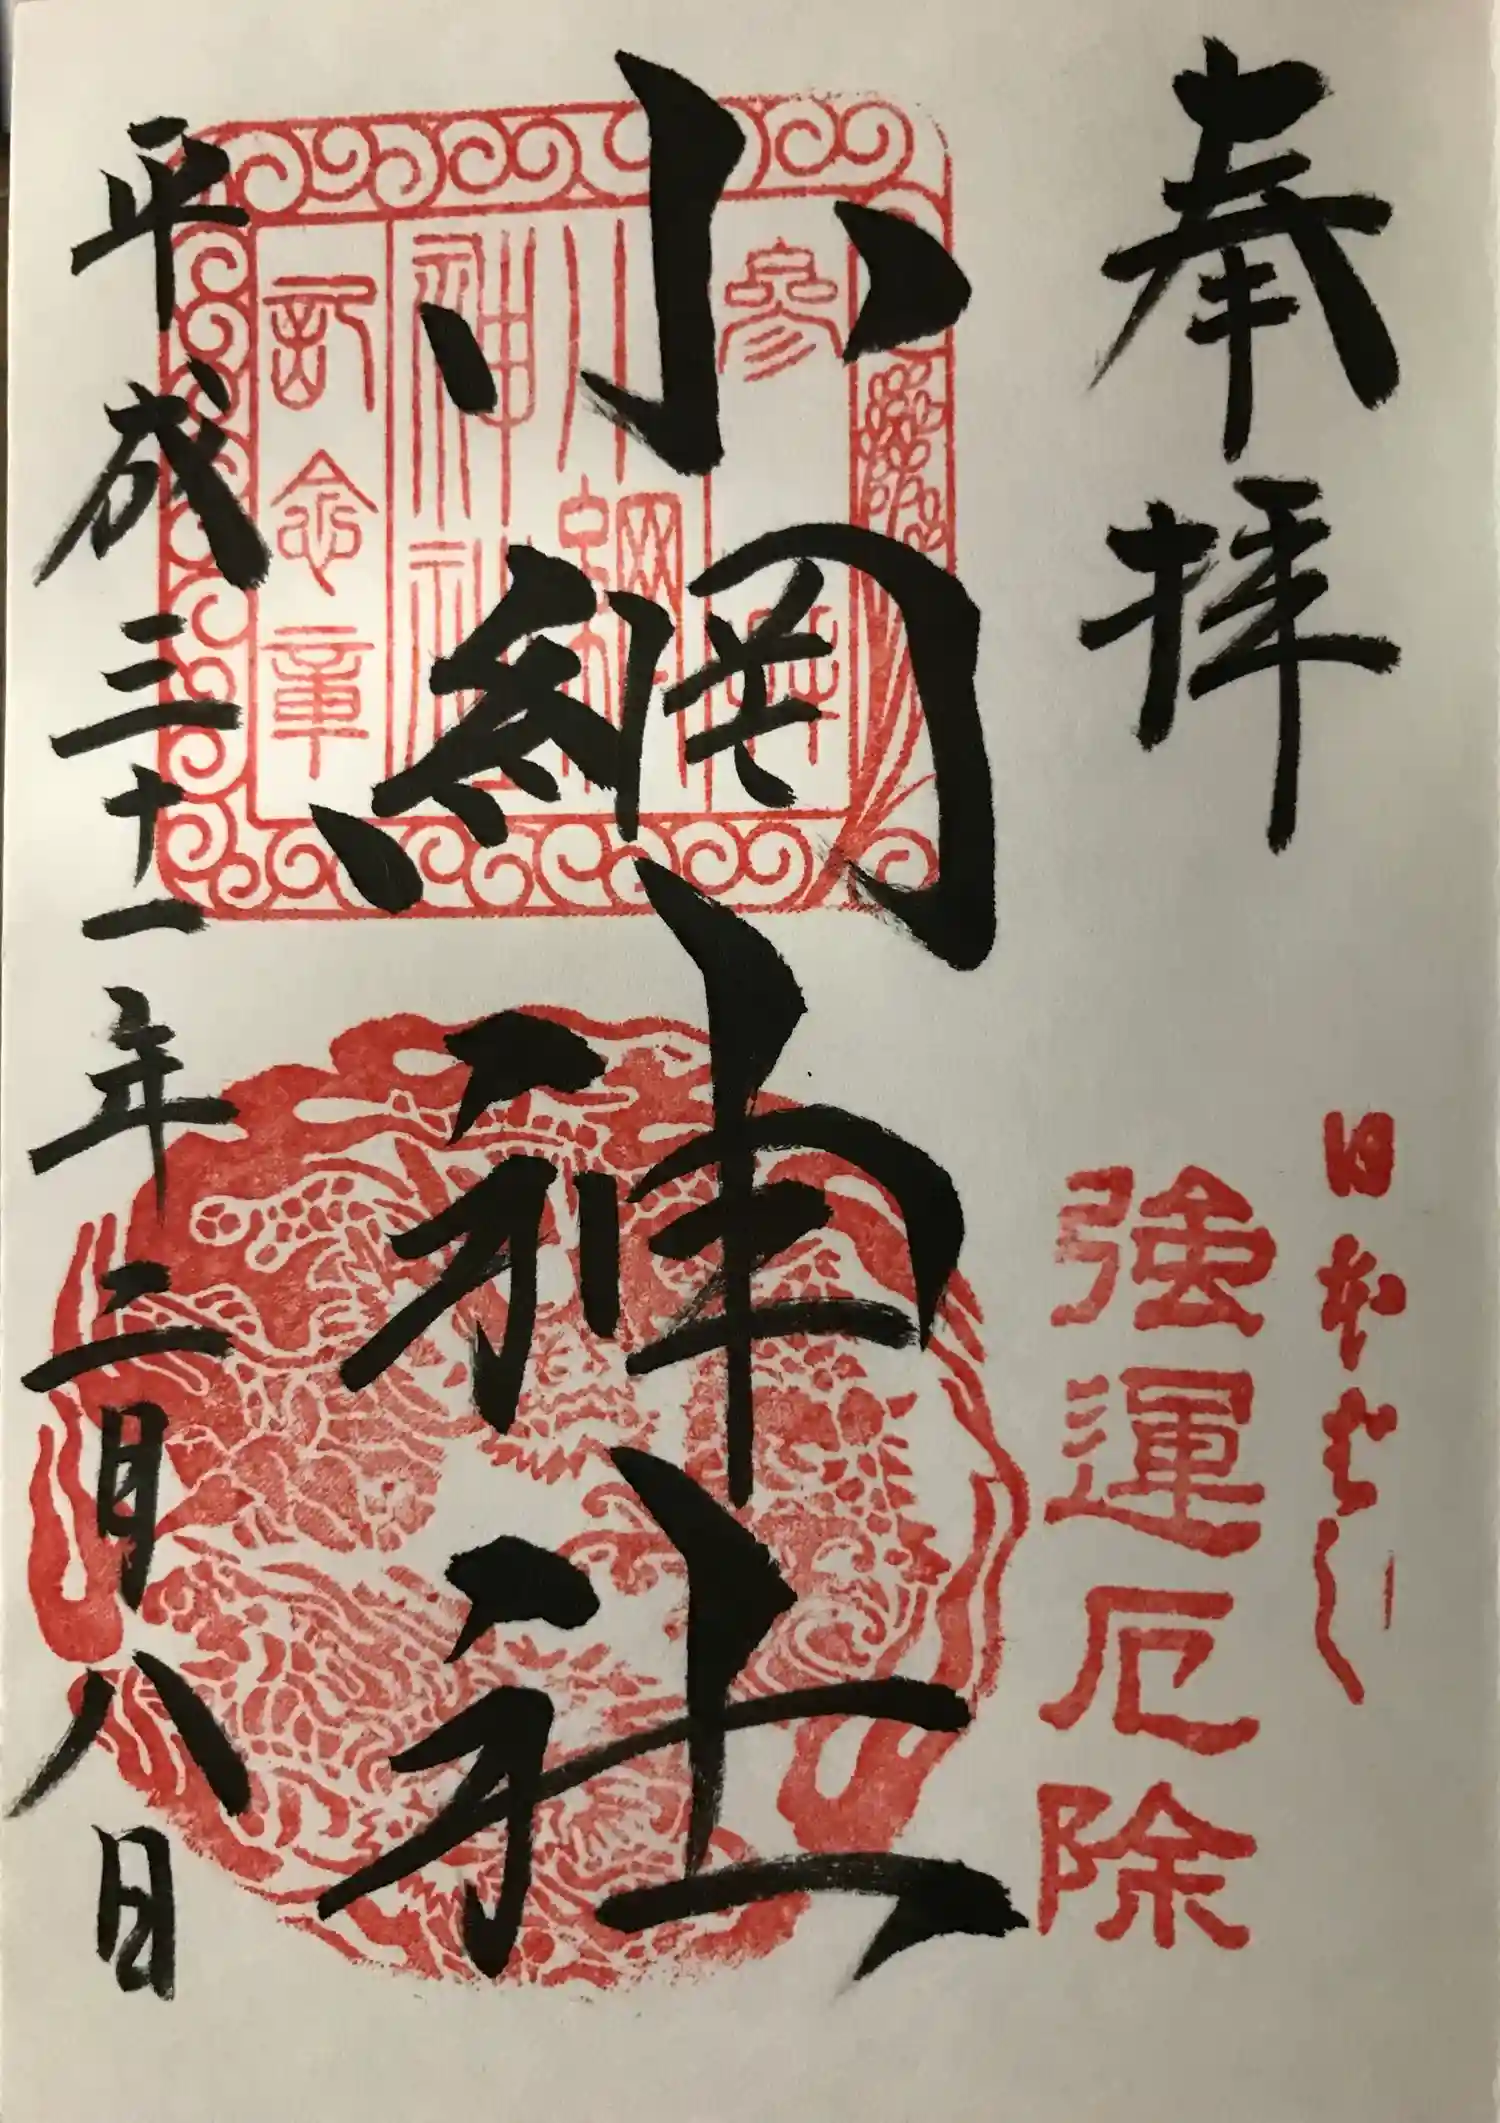 奉拝
日本ばし
強運厄除
小網神社
参拝
小網神社
記念章
平成三十一年二月八日